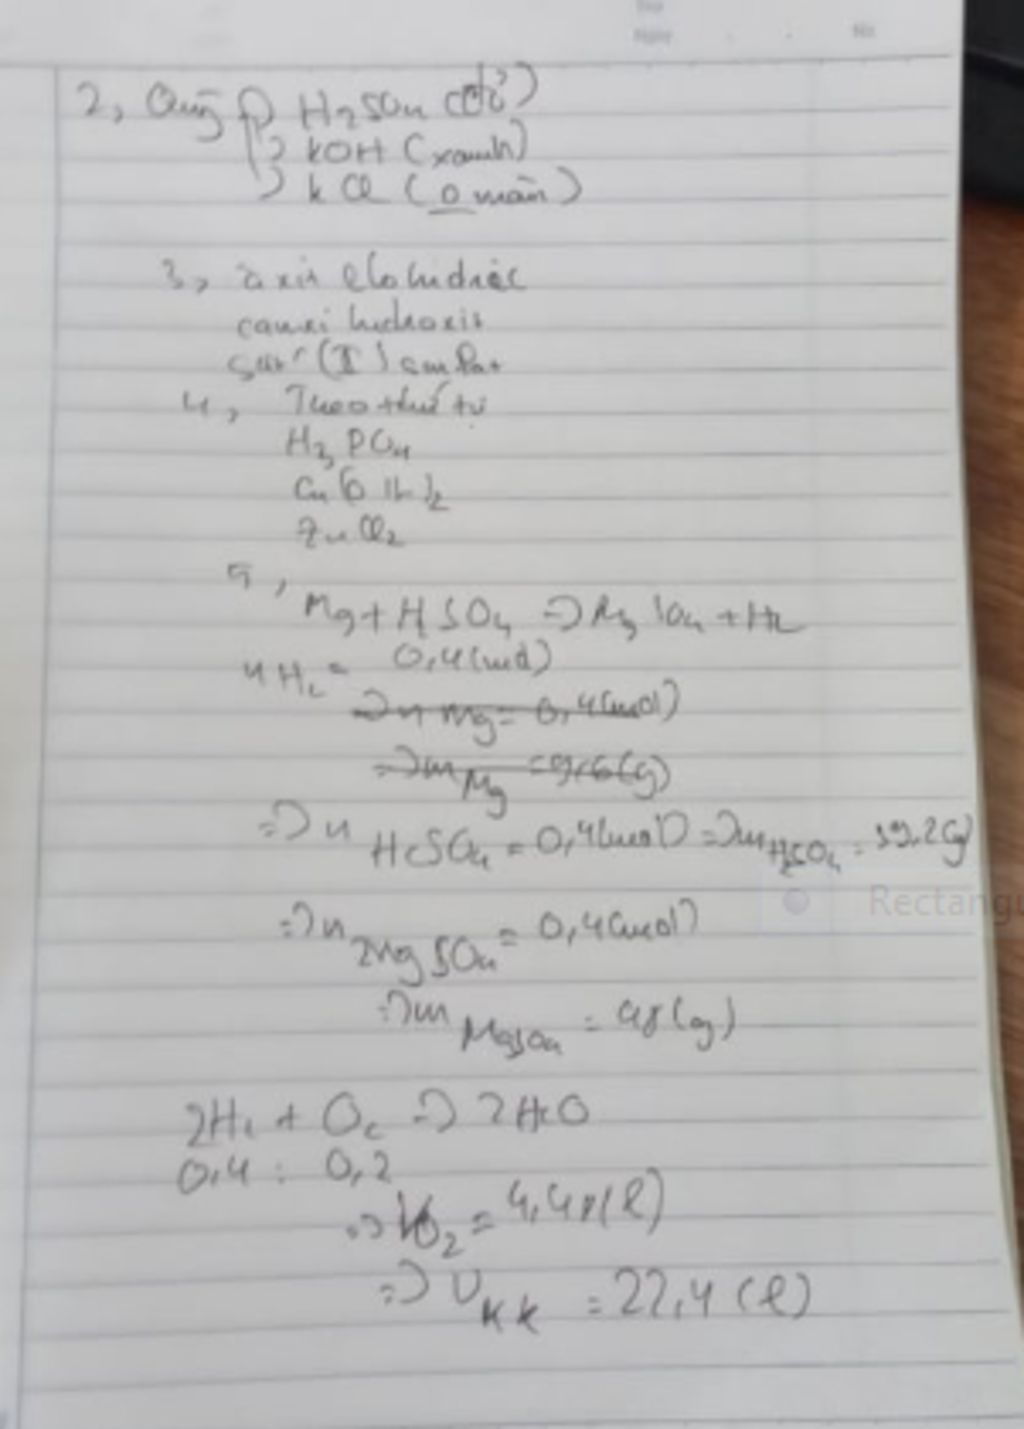 2, Quỳ 1) H2SO4 (đỏ)
2) KOH (xanh)
3) KCl (0 màu)
3, axit clohidric
canxi hidroxit
Sắt (II) sunfat
4, Theo thứ tự
H3PO4
Cu(OH)2
ZnCl2
5,
Mg + H2SO4 => MgSO4 + H2
nH2 = 0,4 (mol)
=> n Mg = 0,4 (mol)
=> m Mg = 9,6 (g)
=> n H2SO4 = 0,4 (mol) => m H2SO4 = 39,2 (g)
Rectangu
=> n MgSO4 = 0,4 (mol)
=> m MgSO4 = 48 (g)
2H2 + O2 => 2H2O
0,4 : 0,2
=> VO2 = 4,48 (l)
=> VKK = 22,4 (l)